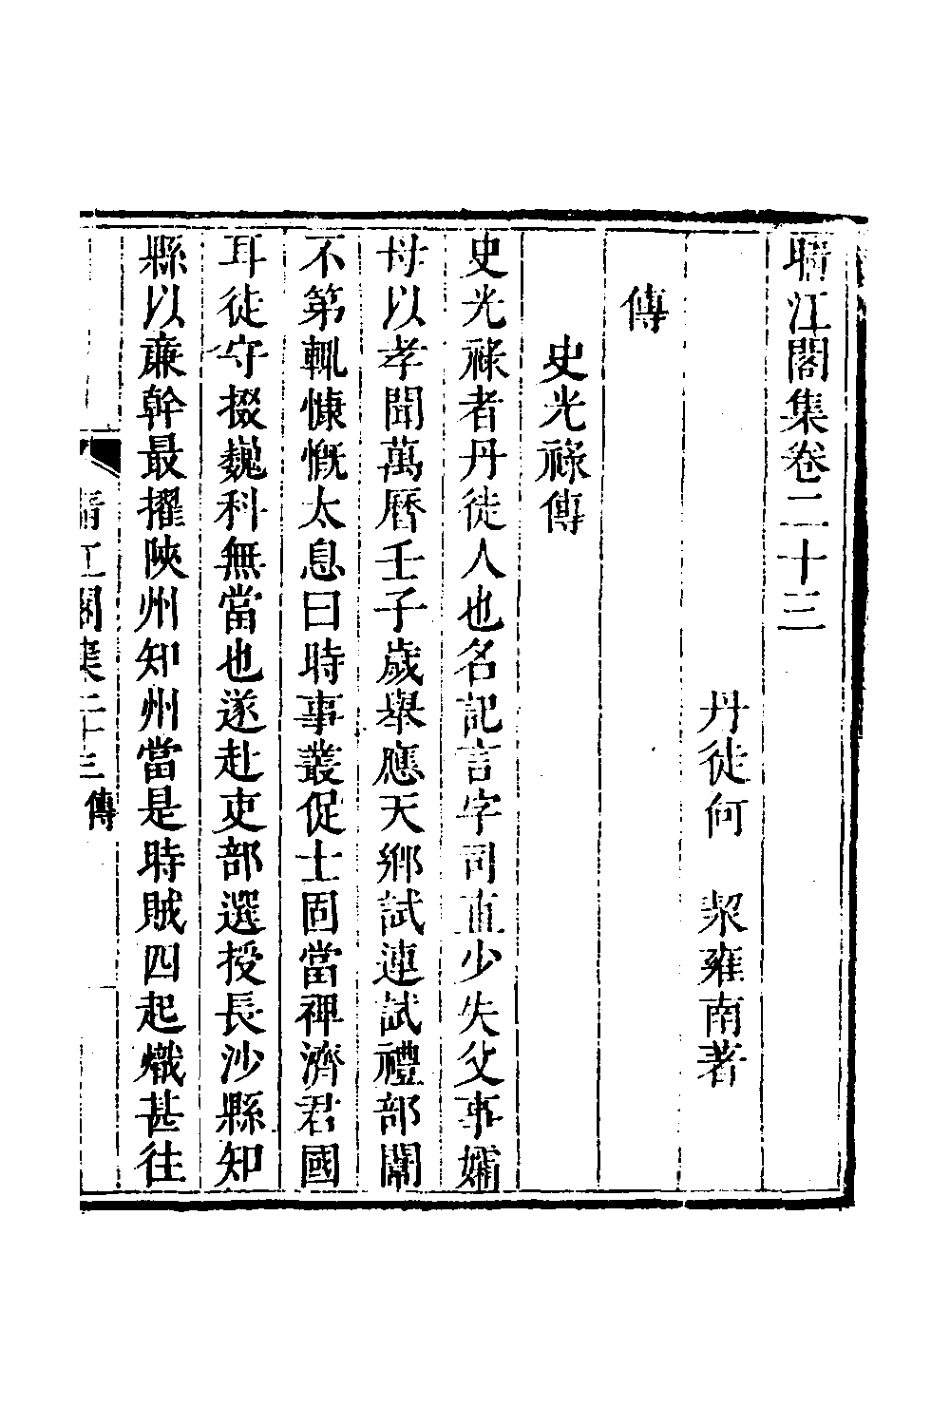 晴江閣集卷二十三
丹徒何 絜雍南著
傳
史光祿傳
史光祿者丹徒人也名記言字司直少失父事孀
母以孝聞萬曆壬子歲舉應天鄉試連試禮部闈
不第輒慷慨太息曰時事叢促士固當裨濟君國
耳徒守掇巍科無當也遂赴吏部選授長沙縣知
縣以亷幹最擢陝州知州當是時賊四起熾甚往
晴江閣集二十三 傳